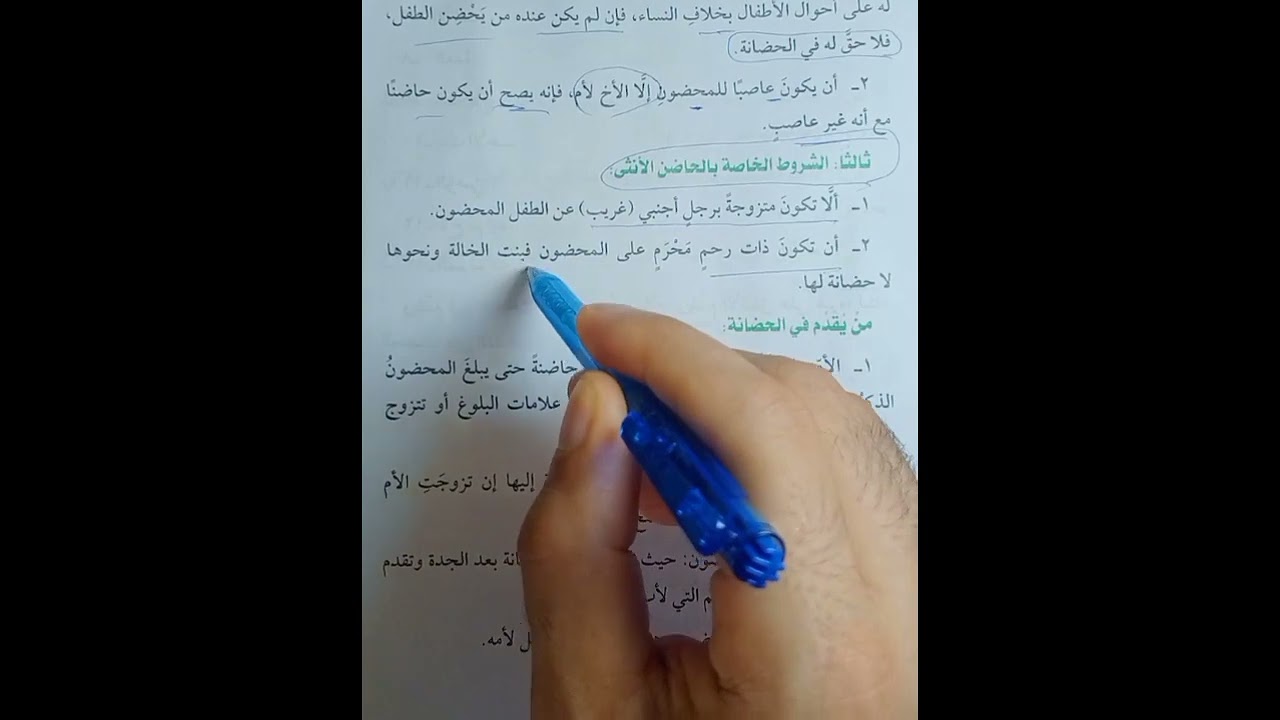 له على أحوال الأطفال بخلافِ النساء، فإن لم يكن عنده من يَحْضِن الطفل،
فلا حقَّ له في الحضانة.
٢ـ أن يكونَ عاصبًا للمحضونِ إلَّا الأخ لأم، فإنه يصح أن يكون حاضنًا
مع أنه غير عاصبٍ.
ثالثًا: الشروط الخاصة بالحاضن الأنثى:
١ـ ألَّا تكونَ متزوجةً برجلٍ أجنبي (غريب) عن الطفل المحضون.
٢ـ أن تكونَ ذات رحمٍ مَحْرَمٍ على المحضون فبنت الخالة ونحوها
لا حضانة لها.
منْ يُقدَّم في الحضانة:
١ـ حاضنةً حتى يبلغَ المحضونُ
علامات البلوغ أو تتزوج
إليها إن تزوجَتِ الأم
حيث بعد الجدة وتقدم
التي
لأمه.